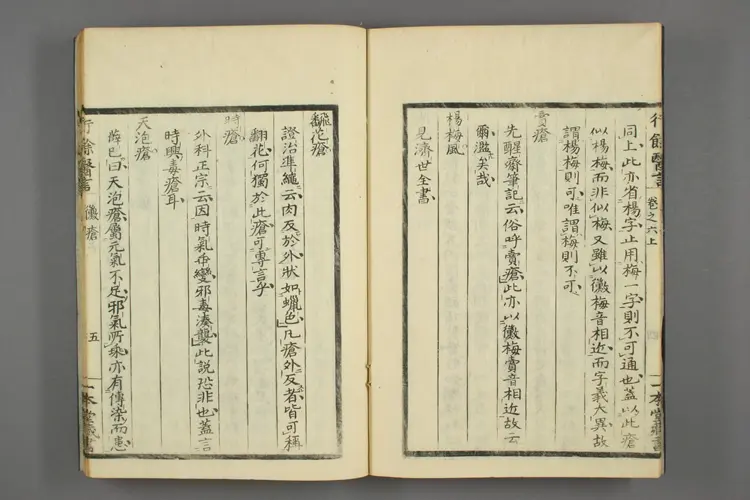 行餘醫言
卷之六上
一本堂藏書
同上此亦省楊字止用梅一字則不可通也蓋以此瘡
似楊梅而非似梅又雖以黴梅音相近而字義大異故
謂楊梅則可唯謂梅則不可
賣瘡
先醒齋筆記云俗呼賣瘡此亦以黴梅賣音相近故云
爾濫矣哉
楊梅風
見濟世全書
飜花瘡
證治準繩云肉反於外狀如蠟色凡瘡外反者皆可稱
翻花何獨於此瘡可專言乎
時瘡
外科正宗云因時氣乖變邪毒湊襲此說恐非也蓋言
時興毒瘡耳
天泡瘡
薛己曰天泡瘡屬元氣不足邪氣所乘亦有傳染而患
行餘醫言
黴瘡
五
一本堂藏書